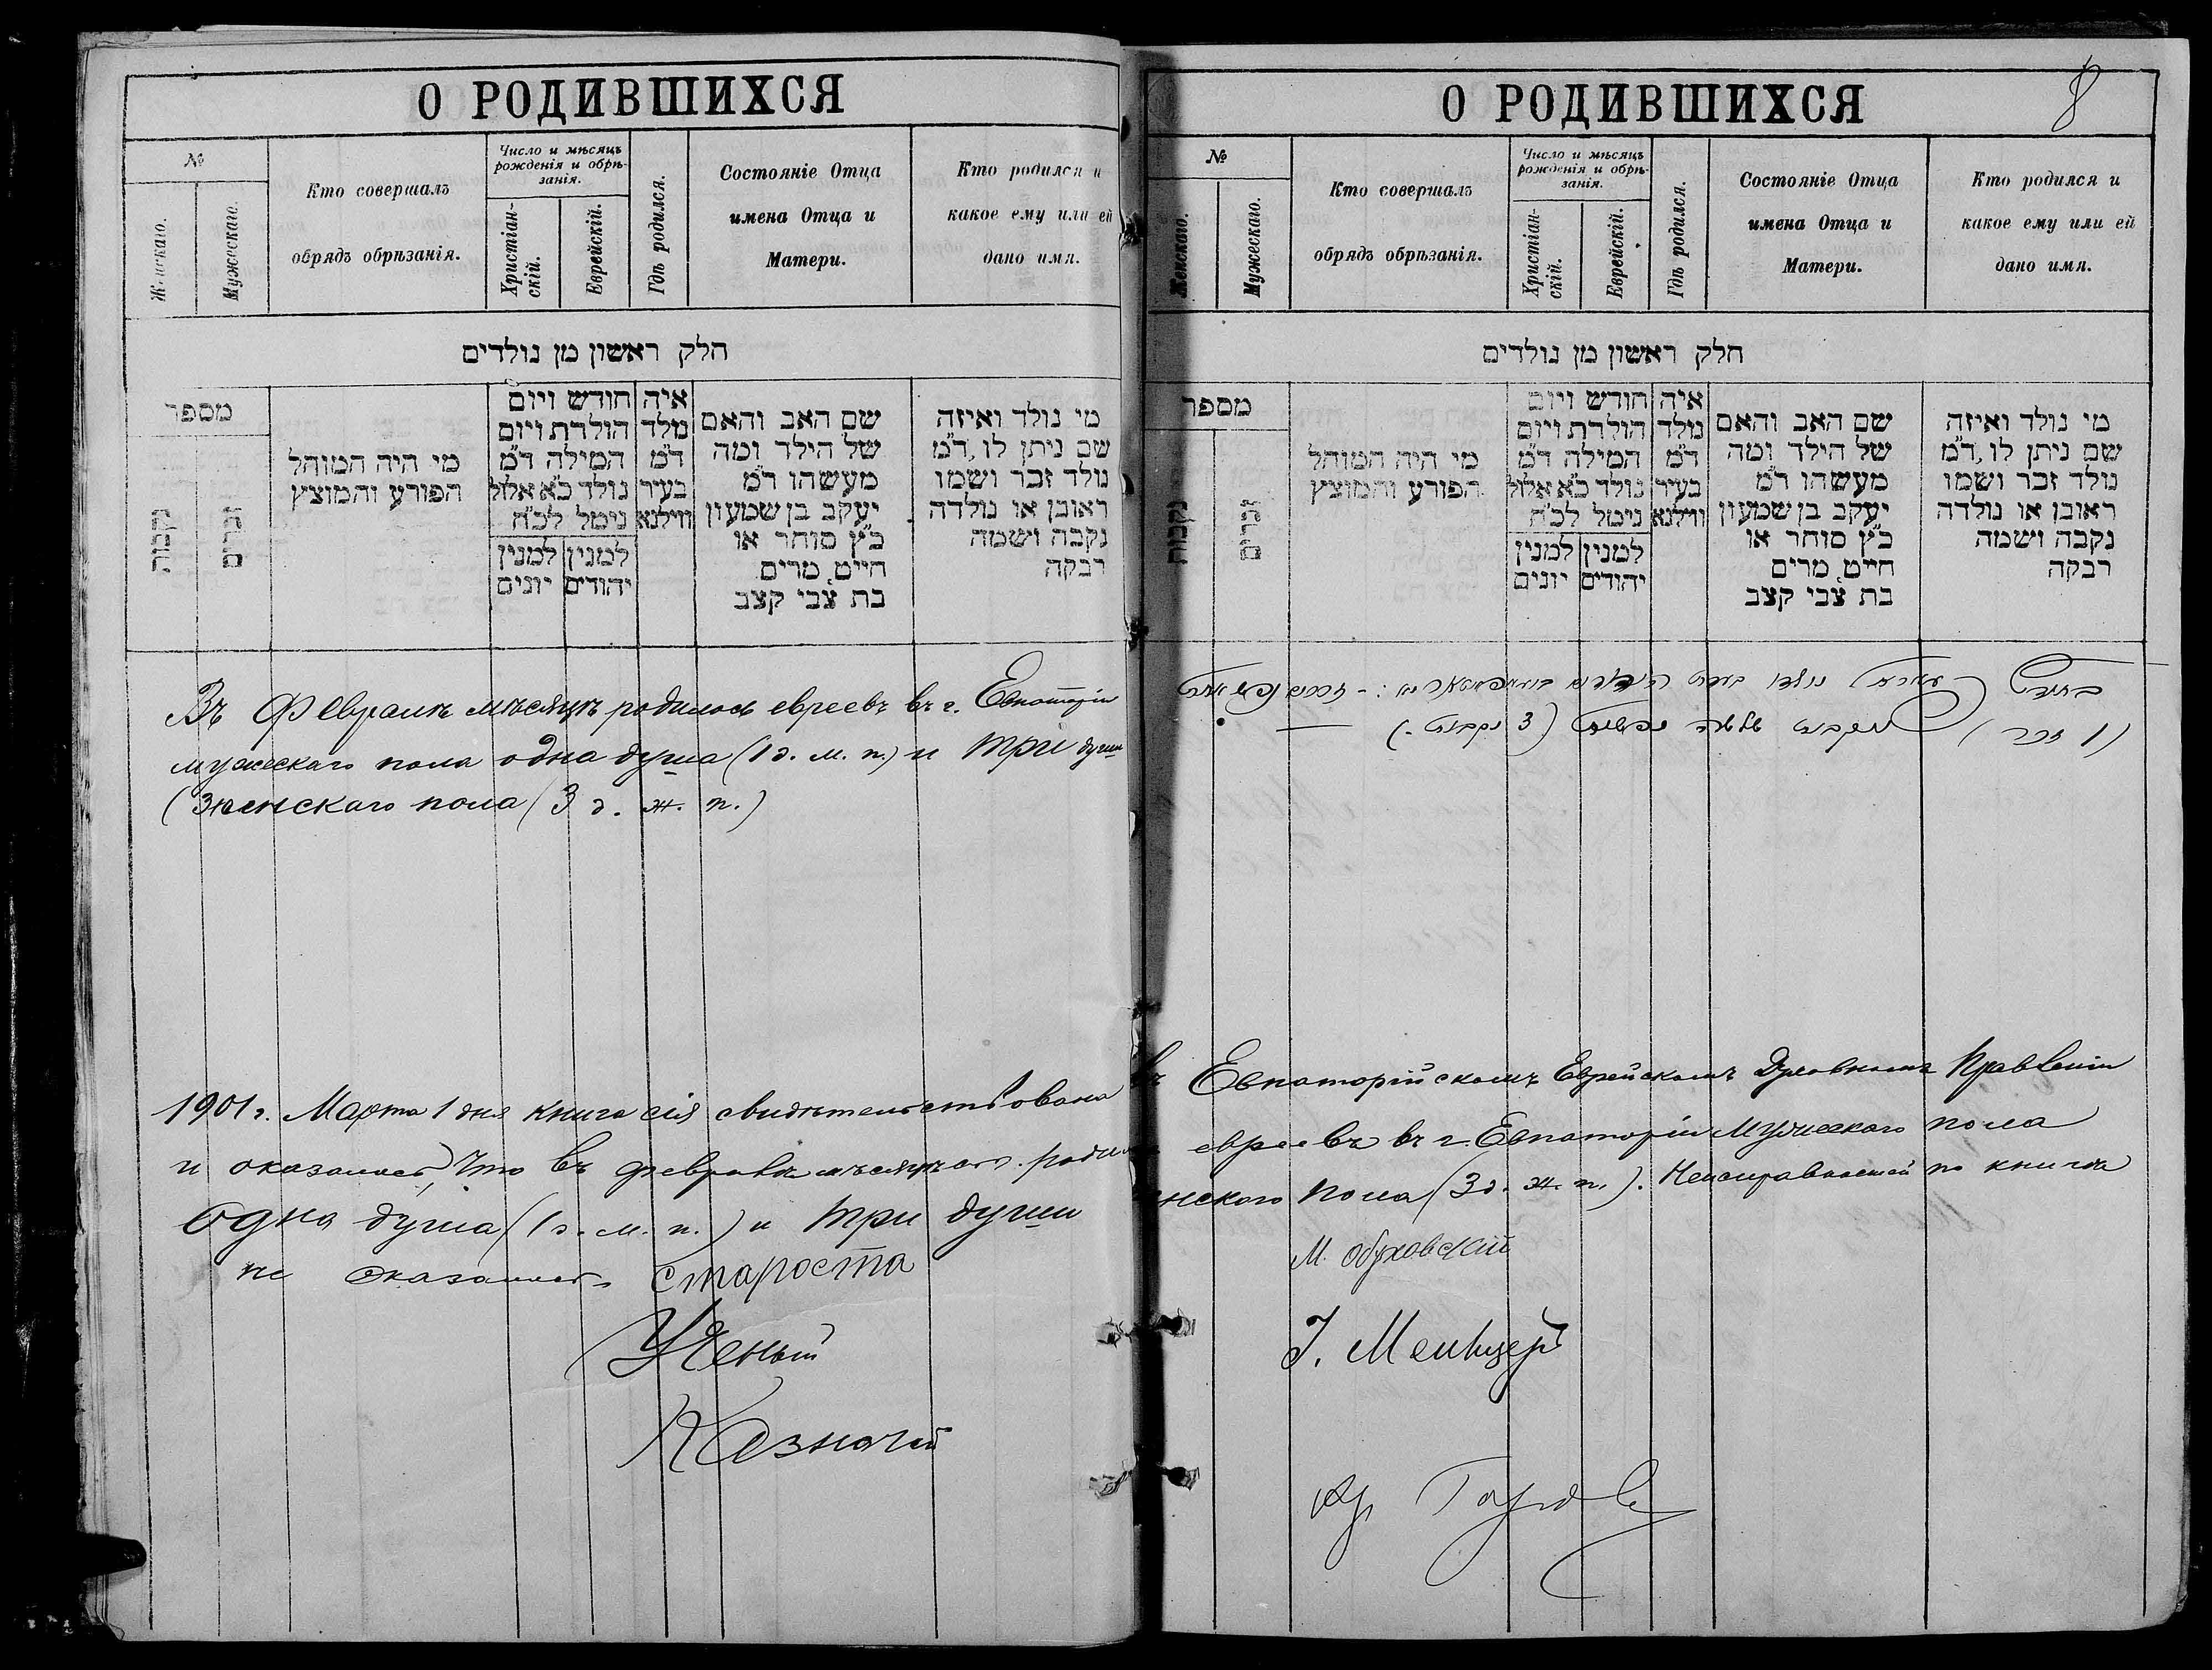 О РОДИВШИХСЯ
№
Женскаго.
Мужескаго.
Кто совершалъ
обрядъ обрѣзанія.
Число и мѣсяцъ
рожденія и обрѣ-
занія.
Христіан-
скій.
Еврейскій.
Гдѣ родился.
Состояніе Отца
имена Отца и
Матери.
Кто родился и
какое ему или ей
дано имя.
חלק ראשון מן נולדים
מי נולד ואיזה
שם ניתן לו, ד״מ
נולד זכר ושמו
ראובן או נולדה
נקבה ושמה
רבקה
שם האב והאם
של הילד ומה
מעשהו ד״מ
יעקב בן שמעון
כ״ץ סוחר או
חייט, מרים
בת צבי קצב
איה
נולד
ד״מ
בעיר
ווילנא
חודש ויום
הולדת ויום
המילה ד״מ
נולד כ״א אלול
נימל לכ״ח
למנין
יהודים
למנין
יונים
מי היה המוהל
הפורע והמוצץ
מספר
זכרים
נקבות
Въ Февралѣ мѣсяцѣ родилось евреевъ въ г. Евпаторіи
мужескаго пола одна душа (1 д. м. п.) и три души
женскаго пола (3 д. ж. п.)
1901 г. Марта 1 дня книга сія свидѣтельствована
и оказалось, что въ февралѣ мѣсяцѣ
одна душа (1 д. м. п.) и три души
не оказалось Староста
Ученый
Казначей
О РОДИВШИХСЯ
8
№
Женскаго.
Мужескаго.
Кто совершалъ
обрядъ обрѣзанія.
Число и мѣсяцъ
рожденія и обрѣ-
занія.
Христіан-
скій.
Еврейскій.
Гдѣ родился.
Состояніе Отца
имена Отца и
Матери.
Кто родился и
какое ему или ей
дано имя.
חלק ראשון מן נולדים
מי נולד ואיזה
שם ניתן לו, ד״מ
נולד זכר ושמו
ראובן או נולדה
נקבה ושמה
רבקה
שם האב והאם
של הילד ומה
מעשהו ד״מ
יעקב בן שמעון
כ״ץ סוחר או
חייט, מרים
בת צבי קצב
איה
נולד
ד״מ
בעיר
ווילנא
חודש ויום
הולדת ויום
המילה ד״מ
נולד כ״א אלול
נימל לכ״ח
למנין
יהודים
למנין
יונים
מי היה המוהל
הפורע והמוצץ
מספר
זכרים
נקבות
(1 זכר) שלשה נפשות (3 נקבות -)
въ Евпаторійскомъ Еврейскомъ Духовномъ Правленіи
евреевъ въ г. Евпаторіи мужескаго пола
женскаго пола (3 д. ж. п.). Неисправностей по книгѣ
М. Обуховскій